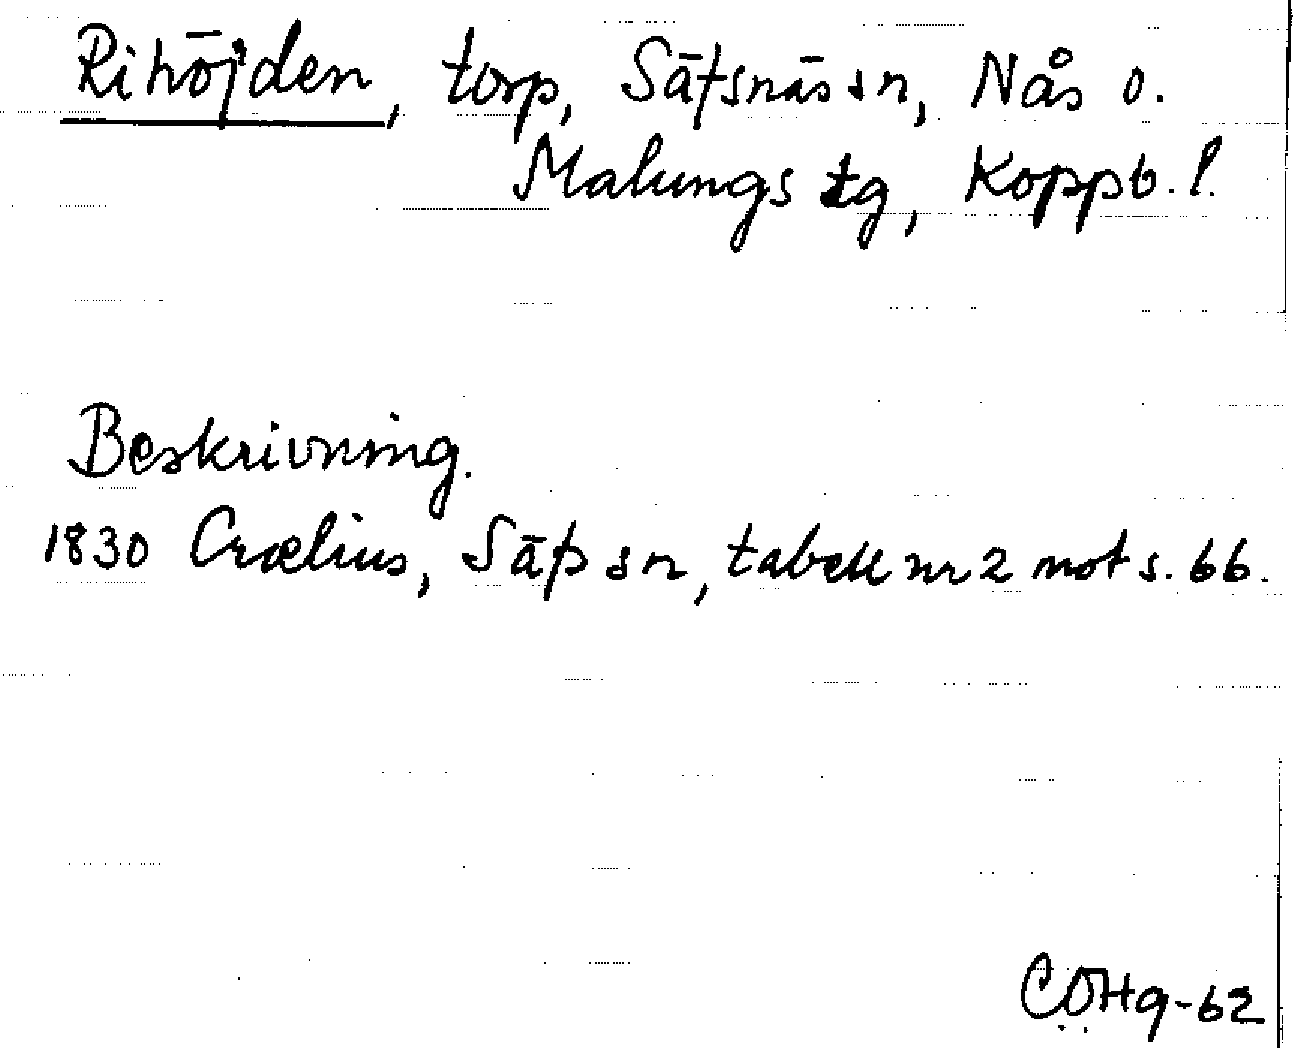 Rihöjden, torp, Säfsnäs sn, Nås o.
Malungs tg, Koppb. l.
Beskrivning.
1830 Crælius, Säfs sn, tabell nr 2 not s. 66.
COHg-62